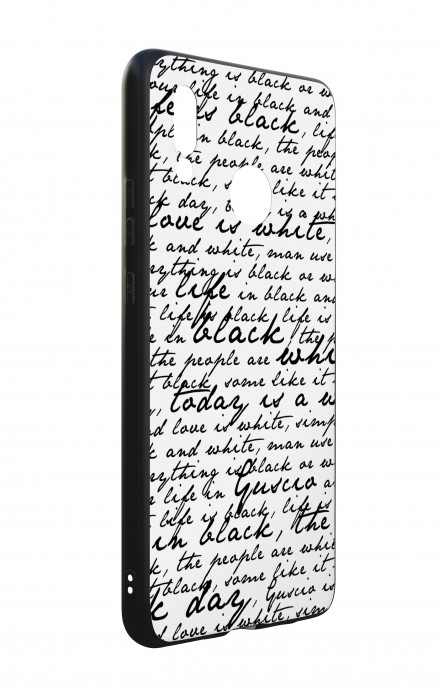 ything is black or w
our life in black and
fe is black, life
in black, the peop
k, the people are whit
t black, like it
k day, is a wh
love is white,
k and white, man use
rything is black or w
ur life in black and
t life is black, life is
e in black, the p
the people are whi
t black, some like it
, today is a w
d love is white, simp
k and white, man use
rything is black or w
r life in Guscio a
t life is black, life is
in black, the
k, the people are whit
t black, some like it
k day, Guscio is
s love is white, sim